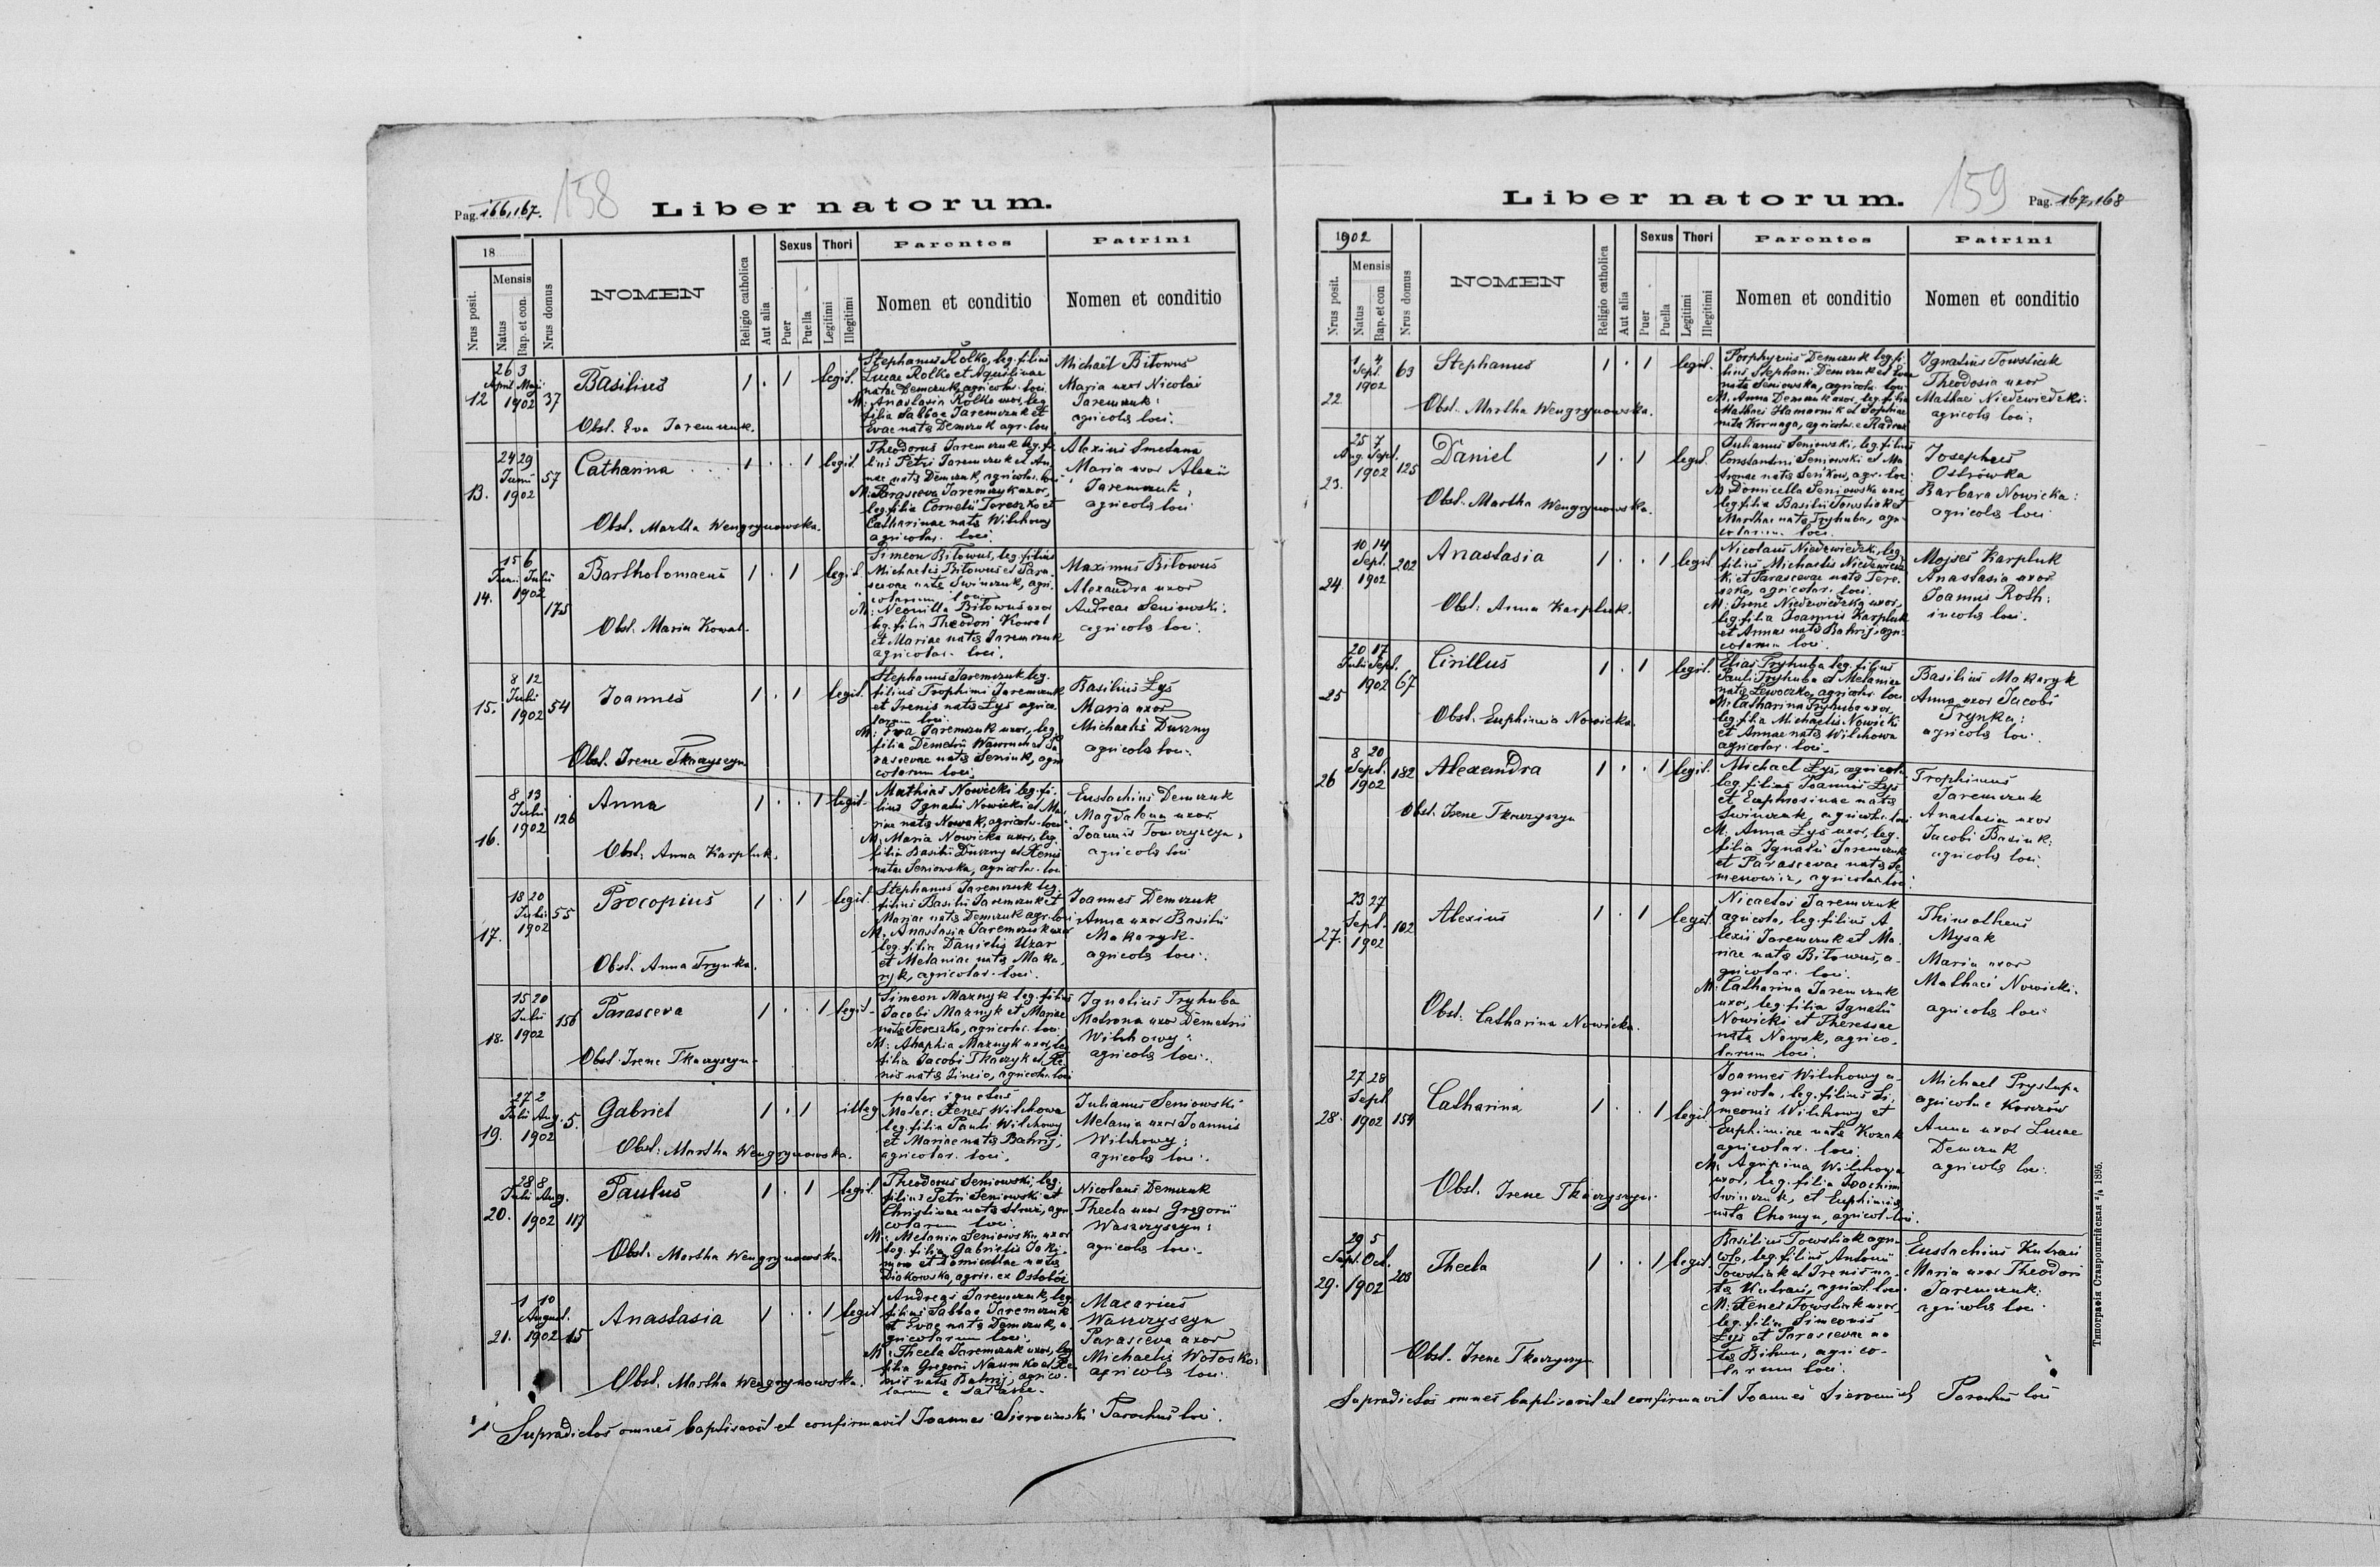 158
Pag. 166,167.
Liber natorum.
18
Nrus posit.
Mensis
Natus
Bap. et con.
Nrus domus
NOMEN
Religio catholica
Aut alia
Sexus
Puer
Puella
Thori
Legitimi
Illegitimi
Parentes
Nomen et conditio
Patrini
Nomen et conditio
12
26 3
April Maji
1902
37
Basilius
Obst. Eva Jaremczuk.
1 . 1
legit.
Stephanus Rolko, leg. filius
Lucae Rolko et Aquilinae
natae Demczuk, agricolar. loci.
M: Anastasia Rolko uxor, leg.
filia Sabbae Jaremczuk et
Evae natae Demczuk agr. loci
Michaël Bitowus
Maria uxor Nicolai
Jaremczuk:
agricolae loci.
13.
24 29
Junii
1902
57
Catharina
Obst. Martha Wengrynowska.
1 . . 1
legit.
Theodorus Jaremczuk leg. fi-
lius Petri Jaremczuk et An-
nae natae Demczuk, agricolar. loci
M: Parasceva Jaremczyk uxor,
leg. filia Cornelii Tereszko et
Catharinae natae Wilchowy
agricolar. loci.
Alexius Smetana
Maria uxor Alexii
Jaremczuk:
agricolae loci
14.
15 6
Junii Julii
1902
175
Bartholomaeus
Obst. Maria Kowal.
1 . 1
legit.
Simeon Bitowus, leg. filius
Michaelis Bitowus et Para-
scevae natae Swinczuk, agri-
colarum loci
M: Neonilla Bitowus uxor
leg. filia Theodori Kowal
et Mariae natae Jaremczuk
agricolar. loci.
Maximus Bitowus
Alexandra uxor
Andreae Seniowski:
agricolae loci.
15.
8 12
Julii
1902
54
Joannes
Obst. Irene Tkaczyszyn
1 . 1
legit.
Stephanus Jaremczuk leg.
filius Trophimi Jaremczuk
et Irenis natae Łyś agrico-
larum loci.
M: Eva Jaremczuk uxor, leg.
filia Demetrii
natae Seniuk, agri
colarum loci.
Basilius Łyś
Maria uxor
Michaelis Duszny
agricolae loci.
16.
8 13
Julii
1902
126
Anna
Obst. Anna Karpluk.
1 . . 1
legit.
Mathias Nowicki leg. fi-
lius Ignatii Nowicki et Ma-
riae natae Nowak, agricolar. loci
M: Maria Nowicka uxor, leg.
filia Basilii Duszny et Xenis
natae Seniowska, agricolar. loci
Eustachius Demczuk
Magdalena uxor
Joannis Towczyszyn:
agricolae loci
17.
18 20
Julii
1902
55
Procopius
Obst. Anna Trynka.
1 . 1
legit.
Stephanus Jaremczuk leg.
filius Basilii Jaremczuk et
Mariae natae Demczuk agr. loci
M: Anastasia Jaremczuk uxor
leg. filia Danielis Uzar
et Melaniae natae Maka-
ryk, agricolar. loci.
Joannes Demczuk
Anna uxor Basilii
Makaryk.
agricolae loci.
18.
15 20
Julii
1902
156
Parasceva
Obst. Irene Tkaczyszyn.
1 . . 1
legit.
Simeon Maznyk leg. filius
Jacobi Maznyk et Mariae
natae Tereszko, agricolar. loci
M: Ahaphia Maznyk uxor, le
filia Jacobi Tkaczyk et Xe-
nis natae agricolar. loci
Ignatius Tryhuba
Matrona uxor Demetrii
Wilchowy:
agricolae loci.
19.
27 2
Julii Aug.
1902
5.
Gabriel
Obst: Martha Wengrynowska.
1 . 1
illeg
pater ignotus
Mater: Xenes Wilchowa
leg. filia Pauli Wilchowy
et Mariae natae Bahrij,
agricolar. loci.
Julianus Seniowski
Melania uxor Joannis
Wilchowy:
agricolae loci.
20.
28 8
Julii Aug.
1902
117
Paulus
Obst: Martha Wengrynowska.
1 . 1
legit.
Theodorus Seniowski, leg.
filius Petri Seniowski et
Christinae natae agri-
colarum loci.
M: Melania Seniowska uxor
leg. filia Gabrielis Jaki-
mow et Domicellae natae
Diakowska, agric. ex
Nicolaus Demczuk
Thecla uxor Gregorii
Waszczyszyn:
agricolae loci.
21.
1 10
August.
1902
15
Anastasia
Obst. Martha Wengrynowska.
1 . . 1
legit
Andreas Jaremczuk, leg.
filius Sabbae Jaremczuk
et Evae natae Demczuk, a-
gricolarum loci.
M: Thecla Jaremczuk uxor, leg
filia Gregorii Naumko et Xe-
nis natae Bahrij, agrico-
larum e
Macarius
Waszczyszyn
Parasceva uxor
Michaelis Wołosko:
agricolae loci.
Supradictos omnes baptisavit et confirmavit Joannes Sierocinski Parochus loci.
Liber natorum.
159
Pag. 167,168
1902
Nrus posit.
Mensis
Natus
Bap. et con
Nrus domus
NOMEN
Religio catholica
Aut alia
Sexus
Puer
Puella
Thori
Legitimi
Illegitimi
Parentes
Nomen et conditio
Patrini
Nomen et conditio
22.
1 4
Sept.
1902
63
Stephanus
Obst. Martha Wengrynowska.
1 . 1
legit.
Porphyrius Demczuk leg. fi-
lius Stephani Demczuk et Evae
natae Seniowska, agricolar. loci
M: Anna Demczuk uxor, leg. filia
Mathaei Hamarnik et Sophiae
natae Kornaga, agricolar. e
Ignatius Towstiuk
Theodosia uxor
Mathaei Niedzwiedzki:
agricolae loci:
23.
25 7
Aug. Sept.
1902
125
Daniel
Obst. Martha Wengrynowska.
1 . 1
legit.
Julianus Seniowski, leg. filius
Constantini Seniowski et Ma
tronae natae Senkow, agr. loci
M: Domicella Seniowska uxor,
leg. filia Basilii Towstiak et
Marthae natae Tryhuba, agri
colarum loci.
Josephus
Ostrówka
Barbara Nowicka:
agricolae loci
24.
10 14
Sept.
1902
202
Anastasia
Obst: Anna Karpluk.
1 . . 1
legit
Nicolaus Niedzwiedzki, leg.
filius Michaelis Niedzwiedz
ki et Parascevae natae Tere-
szko, agricolar. loci.
M: Irene Niedzwiedzka uxor,
leg. filia Joannis Karpluk
et Annae natae Bahrij, agri
colarum loci.
Mojses Karpluk
Anastasia uxor
Joannis Roth:
incolae loci.
25
20 17
Julii Sept.
1902
67
Cirillus
Obst. Euphimia Nowicka.
1 . 1
legit.
Elias Tryhuba leg. filius
Pauli Tryhuba et Melaniae
natae Lewoczko, agricolar. loci
M: Catharina Tryhuba uxor,
leg. filia Michaelis Nowicki
et Annae natae Wilchowa
agricolar. loci.
Basilius Makaryk
Anna uxor Jacobi
Trynka:
agricolae loci
26
8 20
Sept.
1902
182
Alexandra
Obst. Irene Tkaczyszyn
1 . . 1
legit.
Michael Łyś, agricola
leg. filius Joannis Łyś
et Euphrosinae natae
Swinczuk, agricolar. loci
M: Anna Łyś uxor, leg.
filia Ignatii Jaremczuk
et Parascevae natae Se-
menowicz, agricolar. loci.
Trophimus
Jaremczuk
Anastasia uxor
Jacobi Basiuk:
agricolae loci
27.
23 27
Sept.
1902
102
Alexius
Obst: Catharina Nowicka.
1 . 1
legit.
Nicaetas Jaremczuk
agricola, leg. filius A-
lexii Jaremczuk et Ma-
riae natae Bitowus, a-
gricolar. loci.
M: Catharina Jaremczuk
uxor, leg. filia Ignatii
Nowicki et Theressae
natae Nowak, agrico-
larum loci.
Thimotheus
Mysak
Maria uxor
Mathaei Nowicki.
agricolae loci
28.
27 28
Sept
1902
154
Catharina
Obst. Irene Tkaczyszyn.
1 . . 1
legit
Joannes Wilchowy a-
gricola, leg. filius Si-
meonis Wilchowy et
Euphimiae natae Kozak
agricolar. loci.
M: Agripina Wilchowa
uxor, leg. filia Joachim
Swinczuk, et Euphimiae
natae Chomyn, agricol. loci.
Michael Prystupa
agricola e Korczów
Anna uxor Lucae
Demczuk
agricolae loci.
29.
29 5
Sept. Oct.
1902
208
Thecla
Obst. Irene Tkaczyszyn.
1 . . 1
legit.
Basilius Towstiak agri
cola, leg. filius Antonii
Towstiak et Irenis na-
tae Kutrani, agricol. loci.
M: Xenes Towstiak uxor,
leg. filia Simeonis
Łyś et Parascevae na
tae Bihun, agrico-
larum loci.
Eustachius Kutrani
Maria uxor Theodori
Jaremczuk:
agricolae loci.
Supradictos omnes baptisavit et confirmavit Joannes Parochus loci
Типографія Ставропигійская 1896.